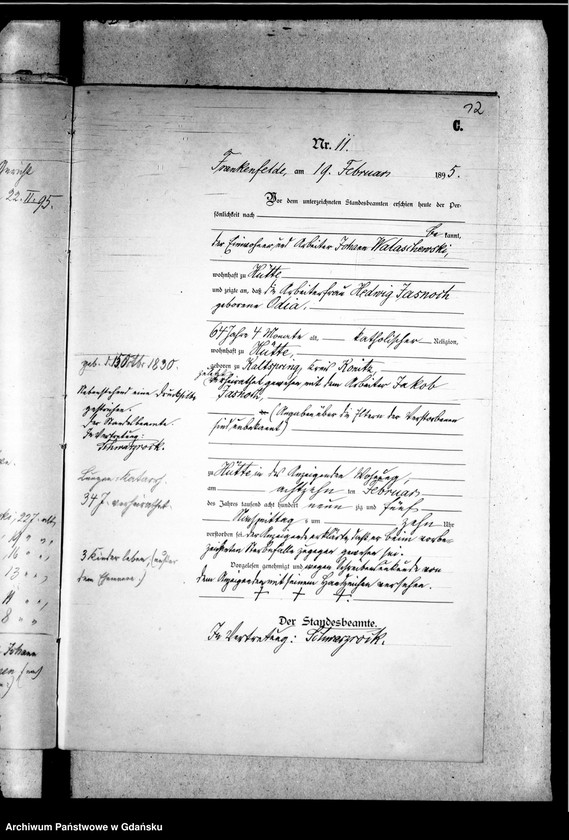 12
C.
Nr. 11.
Frankenfelde, am 19. Februar 1895.
Vor dem unterzeichneten Standesbeamten erschien heute der Per-
sönlichkeit nach
be kannt,
der Einwohner und Arbeiter Johann Walaschewski,
wohnhaft zu Hütte
und zeigte an, daß die Arbeiterfrau Hedwig Jasnoch
geborene Odia.
64 Jahre 4 Monate alt, katholischer Religion,
wohnhaft zu Hütte,
geboren zu Kaltspring, Kreis Konitz,
verheirathet gewesen mit dem Arbeiter Jakob
Jasnoch,
(Angaben über die Eltern der Verstorbenen
sind unbekannt)
zu Hütte in des Anzeigenden Wohnung,
am achtzehn ten Februar
des Jahres tausend acht hundert neun zig und fünf
Nachmittags um zehn Uhr
verstorben sei. Der Anzeigende erklärte, daß er beim vorbe-
zeichneten Sterbefalle zugegen gewesen sei.
Vorgelesen, genehmigt und wegen Schreibensunkunde von
dem Anzeigenden mit seinem Handzeichen versehen.
+ + +
Der Standesbeamte.
In Vertretung: Schwarzrock.
geb. d. 15 Oktbr 1830.
Nebenstehend eine Druckzeile
gestrichen.
Der Standesbeamte.
In Vertretung:
Schwarzrock.
Lungen Katarrh.
34 J. verheirathet
3 Kinder leben, (außer
dem Ehemann.)
22. II. 95.
Johann
Archiwum Państwowe w Gdańsku